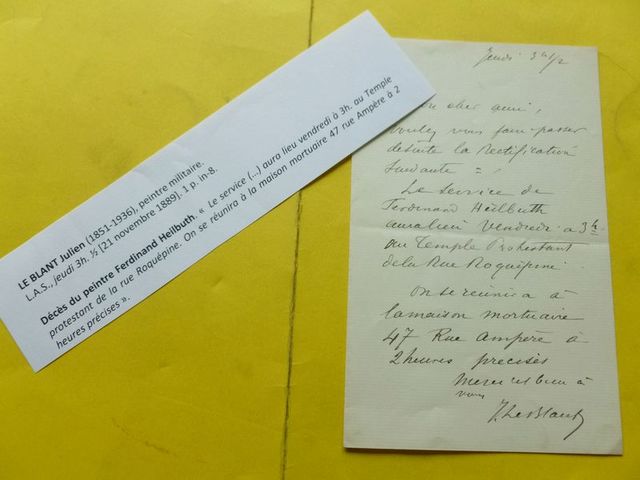 LE BLANT Julien (1851-1936), peintre militaire.
L.A.S., jeudi 3h. ½ [21 novembre 1889]. 1 p. in-8.
Décès du peintre Ferdinand Heilbuth. « Le service (...) aura lieu vendredi à 3h. au Temple
protestant de la rue Roquépine. On se réunira à la maison mortuaire 47 rue Ampère à 2
heures précises ».
Jeudi 3h 1/2
cher ami,
Voulez vous faire passer
de suite la rectification
suivante =
Le service de
Ferdinand Heilbuth
aura lieu Vendredi a 3h
au Temple Protestant
de la Rue Roquépine
On se réunira à
la maison mortuaire
47 Rue Ampère à
2 heures precises
Merci et bien à
vous
J. Le Blant